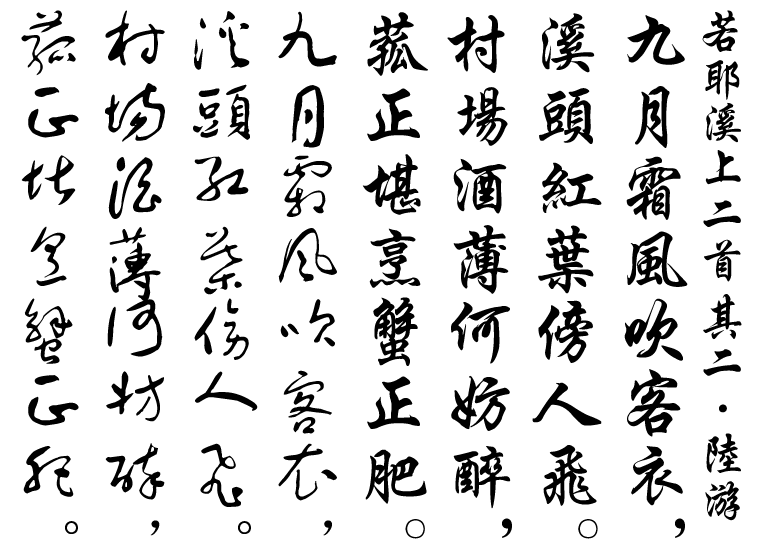 若耶溪上二首其二・陸游
九月霜風吹客衣，
溪頭紅葉傍人飛。
村場酒薄何妨醉，
菰正堪烹蟹正肥。
九月霜風吹客衣，
溪頭紅葉傍人飛。
村場酒薄何妨醉，
菰正堪烹蟹正肥。